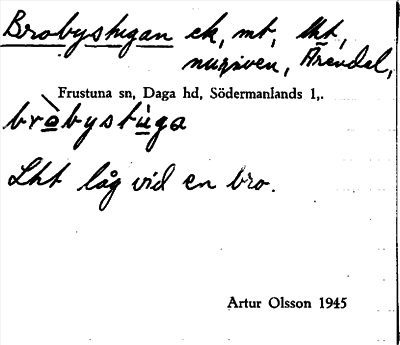 Brobystugan ek, mt, lht,
nugiven, Ärendel,
Frustuna sn, Daga hd, Södermanlands l,.
bròbystùga
Lht låg vid en bro.
Artur Olsson 1945